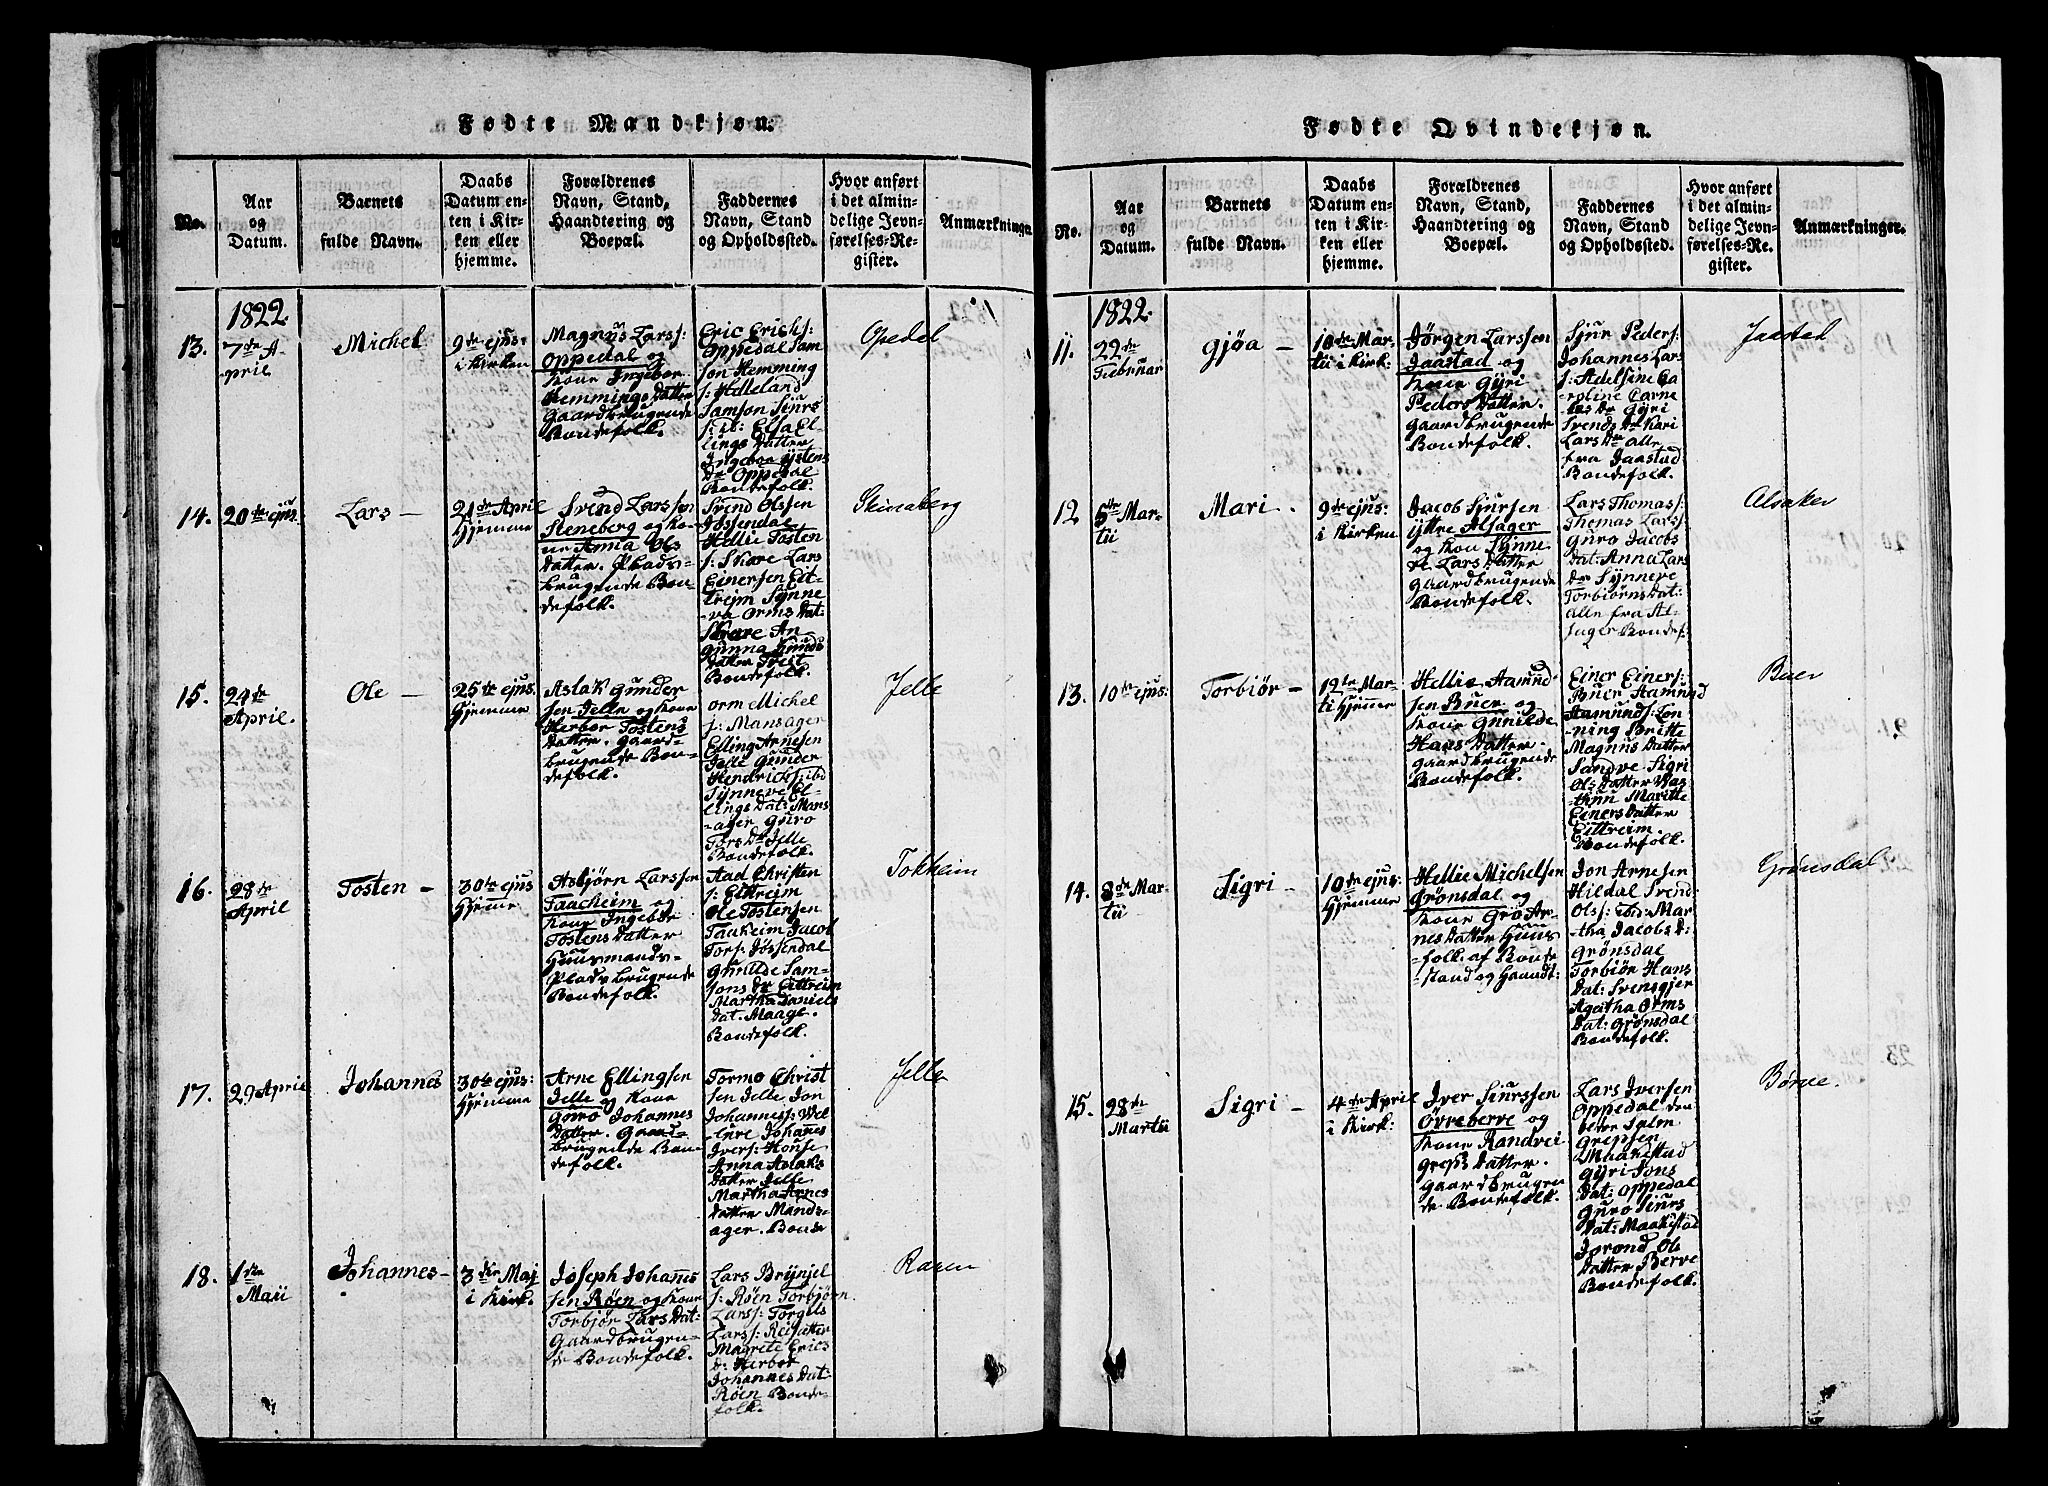 Fødte Mandkjøn.
No.
Aar
og
Datum.
Barnets
fulde Navn.
Daabs
Datum en-
ten i Kir-
ken eller
hjemme.
Forældrenes
Navn, Stand,
Haandtering og
Boepæl.
Faddernes
Navn, Stand
og Opholdssted.
Hvor anført
i det almin-
delige Jevn-
førelses-Re-
gister.
Anmærkninger
1822.
13.
7de A-
pril
Michel
9de ejus-
i Kirken
Magnus Larss:
Oppedal og
Kone Ingebor
Hemmings Datter
Gaardbrugende
Bondefolk.
Eric Erichs:
Oppedal Sam
son Hemming
s: Helleland
Samson Siurs
s: ib: Elsa El-
lings Datter
Ingebor Østens
Dr Oppedal
Bondefolk.
Opedal
14.
20de ejus.
Lars –
21de April
Hjemme
Svend Larssen
Steneberg og Ko-
ne Anna Ols
Datter. Plads-
brugende Bon-
defolk.
Svend Olssen
Jossendal
Hellie Tosten
s: Skare Lars
Einersen Eit-
treim Synne
-va Orms Dat:
Skare. An
gunna
Datter
Bondefolk.
Skinaberg
15.
24de
April.
Ole –
25de ejus.
Hjemme
Aslak Gunder
sen Jelle og Kone
Herbor Tostens
Datter. Gaard-
brugende Bon-
defolk.
Orm Michel
s: Mansager
Elling Arnesen
Jelle Gunder
Hendrichs: ibd
Synneve El-
lings Dat: Mans
-ager Guro
Tors Dr Jelle
Bondefolk.
Jelle
16.
28de
April
Tosten –
30te ejus
Hjemme
Asbjørn Larssen
Taacheim og
Kone Ingebor
Tostens Datter
Huusmands-
Plads brugende
Bondefolk.
Aad Christen
s: Eittreim
Ole Tostensen
Taakeim Jacob
Tors: Jøssendal
Gunilde Sam-
sons Dr Eittreim
Martha Daniels
Dat. Maage.
Bondefolk.
Tokheim
17.
29 April
Johannes
30te ejus:
Hjemme
Arne Ellingsen
Jelle og Kone
Guro Johannes
Datter. Gaard-
brugende Bon-
defolk.
Tormo Christ
sen Jelle Jon
Johanness:
Johanes
Ivers:
Anna Aslaks
Datter Jelle
Martha Arnes
Datter Mands-
ager. Bonde
Jelle
18.
1ste
Maii
Johannes –
3die Maj
i Kirk.
Joseph Johannes
sen Røen og Kone
Torbjør Lars Dat:
Gaardbrugen-
de Bondefolk.
Lars Brynjel
s: Røen Torbjørn
Larss: Torgils
Larss: Reisætter
Magrete Erics
D: Herbor
Johannes Dat
Røen Bonde-
folk.
Raaen
Fødte Qvindekjøn.
No.
Aar
og
Datum.
Barnets
fulde Navn.
Daabs
Datum en-
ten i Kir-
ken eller
hjemme.
Forældrenes
Navn, Stand,
Haandtering og
Boepæl.
Faddernes
Navn, Stand
og Opholdssted.
Hvor anført
i det almin-
delige Jevn-
førelses-Re-
gister.
Anmærkninger.
1822.
11.
22de
Februar
Gjøa –
10de Mar-
tii i Kirk:
Jørgen Larssen
Jaastad og
Kone Gyri
Peders Datter.
Gaardbrugende
Bondefolk.
Sjur Peders:
Johannes Lars
s: Adelsine Ca-
roline Carne
Gyri
Svends Dr Kari
Lars Dr alle
fra Jaastad
Bondefolk.
Jaastad
12
5te Mar-
tii
Mari.
9de ejus:
i Kirken
Jacob Sjursen
Yttre Alsager
og Kone Synne
ve Lars Datter
Gaardbrugende
Bondefolk.
Lars Thomas:
Thomas Larss:
Guro Jacobs
Dat: Anna Lars
Dr Synneve
Torbiørns Dat:
alle fra Al-
sager Bondef:
Alsaker
13.
10de ejus:
Torbiør –
12te Mar-
ti Hjemme
Hellie Aamund
sen Buer og
Kone Gunilde
Hans Datter.
Gaardbrugende
Bondefolk.
Einer Einers:
Buer Aamund
Aamunds: Jon-
ning Britte
Magnus Datter
Sandve Sigri
Ols Datter Vas
-thun Maritte
Einers Datter
Eittreim.
Bondefolk.
Buer
14.
8de Mar-
tii
Sigri –
10de ejus:
Hjemme
Hellie Michelsen
Grønsdal og
Kone Gro Ar-
nes Datter Huus
-folk af Bonde
-stand og Haandt:
Jon Arnesen
Hildal Svend
Ols: ibd: Mar
tha Jacobs D:
Grønsdal
Torbiør Hans
Dat: Svensgjer
Agatha Orms
Dat: Grønsdal
Bondefolk.
Grønsdal
15.
28de
Martii
Sigri –
4de April
i Kirk:
Iver Siurssen
Øvreberve og
Kone Randvei
Greps Datter.
Gaardbrugen
de Bondefolk.
Lars Iversen
Oppedal
Grepsen
Maakestad
Gyri Jons
Dat: Oppedal
Guro Siurs
Dat: Maakestad
Jorond Ols
Datter Berve
Bondefolk.
Børve.